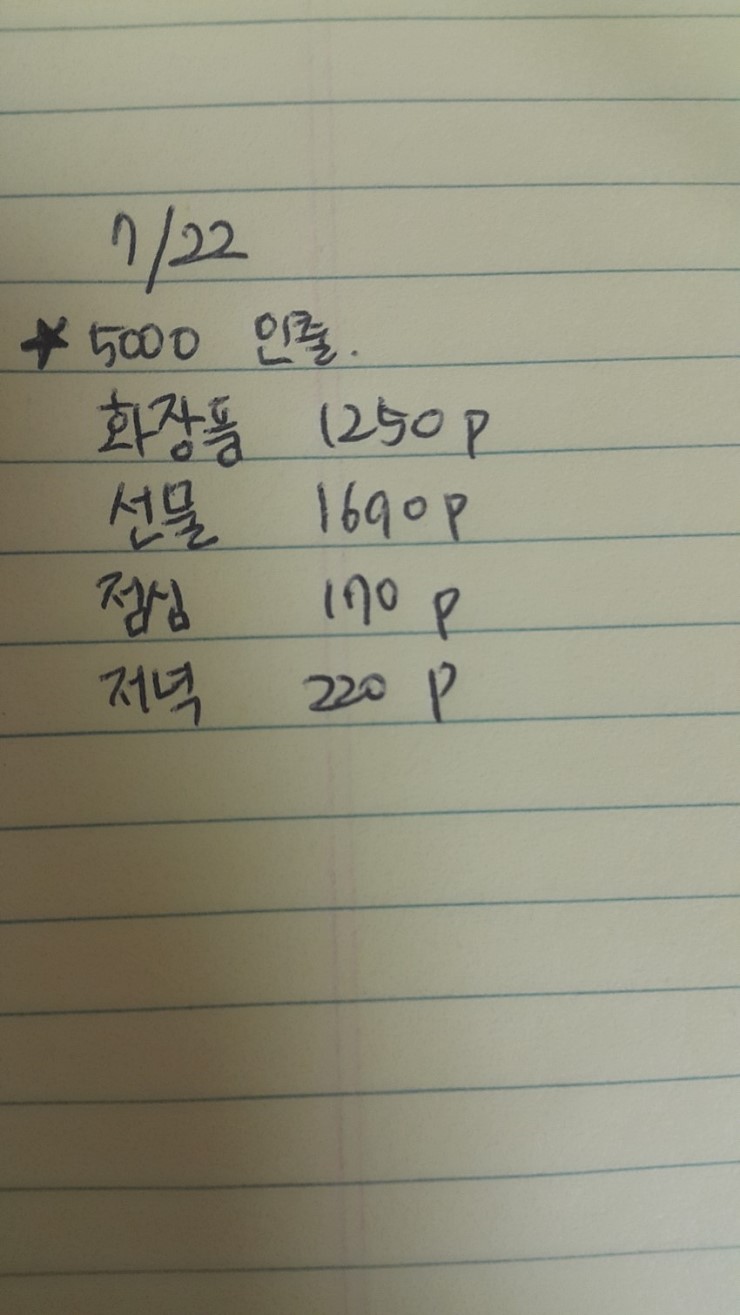 7/22
★ 5000 인출.
화장품 1250 P
선물 1690 P
점심 170 P
저녁 220 P